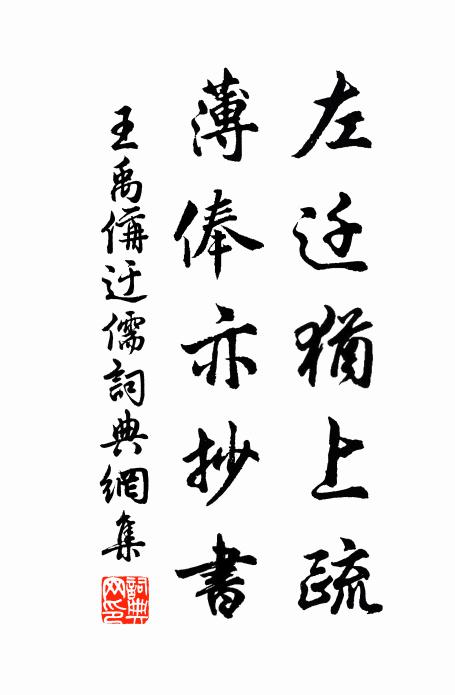 左迁猶上疏
薄俸亦抄書
王禹偁迂儒詞典網集
詞典网印